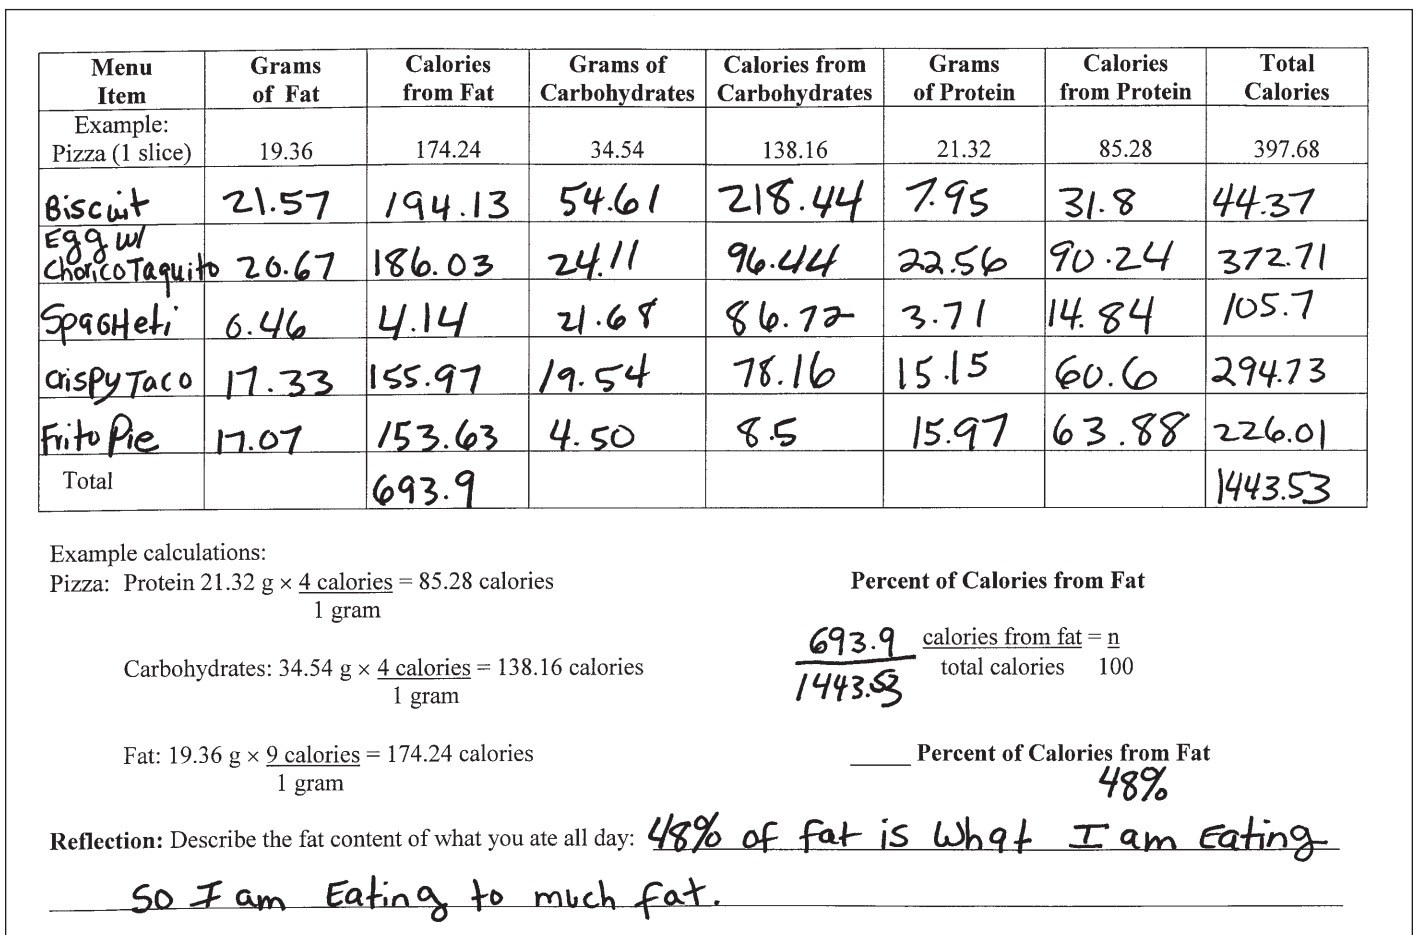 Menu Item | Grams of Fat | Calories from Fat | Grams of Carbohydrates | Calories from Carbohydrates | Grams of Protein | Calories from Protein | Total Calories
Example: Pizza (1 slice) | 19.36 | 174.24 | 34.54 | 138.16 | 21.32 | 85.28 | 397.68
Biscuit | 21.57 | 194.13 | 54.61 | 218.44 | 7.95 | 31.8 | 44.37
Egg w/ Chorico Taquito | 20.67 | 186.03 | 24.11 | 96.44 | 22.56 | 90.24 | 372.71
SpagHeti | 0.46 | 4.14 | 21.68 | 86.72 | 3.71 | 14.84 | 105.7
Crispy Taco | 17.33 | 155.97 | 19.54 | 78.16 | 15.15 | 60.6 | 294.73
Frito Pie | 17.07 | 153.63 | 4.50 | 8.5 | 15.97 | 63.88 | 226.01
Total | 693.9 | 1443.53
Example calculations:
Pizza: Protein 21.32 g × 4 calories = 85.28 calories
1 gram
Percent of Calories from Fat
693.9 calories from fat = n
1443.53 total calories 100
Carbohydrates: 34.54 g × 4 calories = 138.16 calories
1 gram
Fat: 19.36 g × 9 calories = 174.24 calories
1 gram
Percent of Calories from Fat
48%
Reflection: Describe the fat content of what you ate all day: 48% of fat is what I am Eating
so I am Eating to much fat.